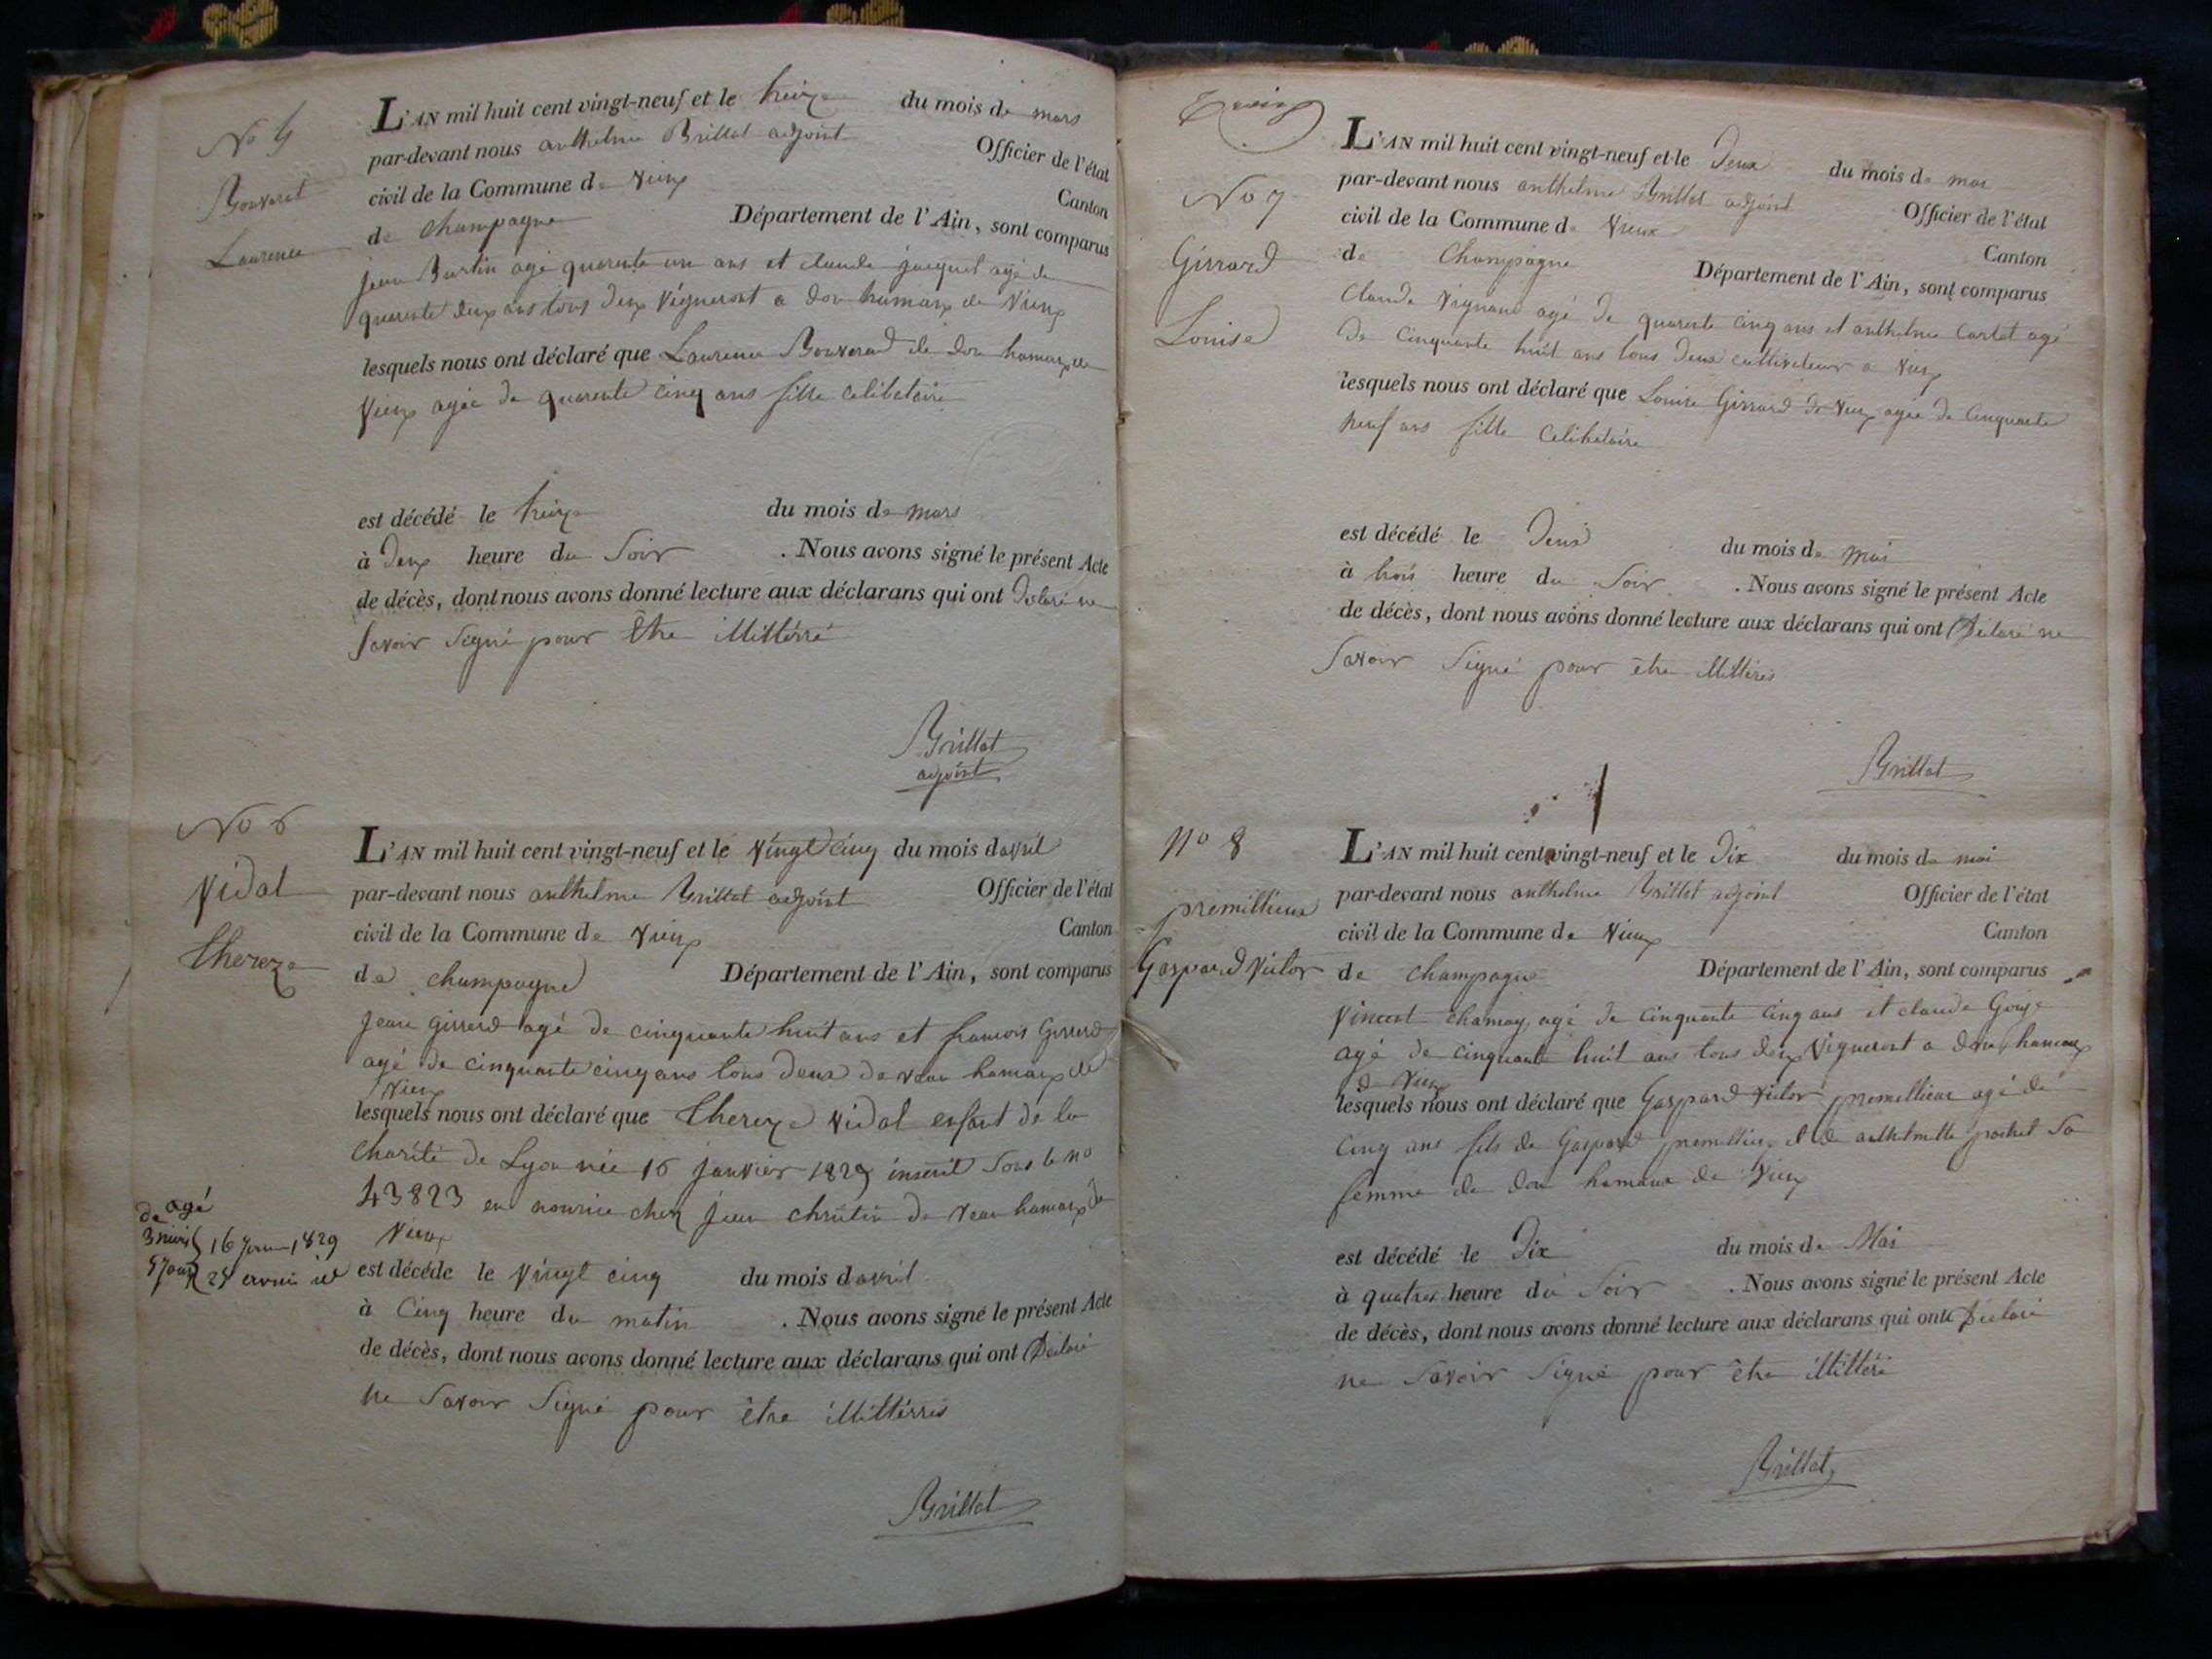 No 5
Bouvaret
Laurence
L'AN mil huit cent vingt-neuf et le treize du mois de mars
par-devant nous anthelme Brillat adjoint Officier de l'état
civil de la Commune de Vieux Canton
de Champagne Département de l'Ain, sont comparus
jean Burtin agé quarente un ans et claude jacquet agé de
quarente deux ans tous deux Vigneront a don hamaux de Vieux
lesquels nous ont déclaré que Laurence Bouverad de don hamaux de
Vieux agée de quarente cinq ans fille celibetaire
est décédé le treize du mois de mars
à deux heure du Soir . Nous avons signé le présent Acte
de décès, dont nous avons donné lecture aux déclarans qui ont Déclaré ne
Savoir Signé pour être illittérré
Brillat
adjoint
No 6
Vidal
thereze
L'AN mil huit cent vingt-neuf et le Vingt cinq du mois davril
par-devant nous anthelme Brillat adjoint Officier de l'état
civil de la Commune de Vieux Canton
de champagne Département de l'Ain, sont comparus
jean girrerd agé de cinquante huit ans et francois Girrerd
agé de cinquante cinq ans tous deux de veau hamaux de
Vieux
lesquels nous ont déclaré que thereze Vidal enfant de la
Charité de Lyon née 16 janvier 1829 inscrit Sous le no
43823 en nourice chez jean chrîtin de veau hamaux de
Vieux
agé
de
3 mois 16 1829
9 jours 25 avril id
est décédé le Vingt cinq du mois davril
à Cinq heure du matin . Nous avons signé le présent Acte
de décès, dont nous avons donné lecture aux déclarans qui ont Déclaré
ne Savoir Signé pour être illittérrés
Brillat
No 7
Girrard
Louise
L'AN mil huit cent vingt-neuf et le Deux du mois de mai
par-devant nous anthelme Brillat adjoint Officier de l'état
civil de la Commune de Vieux Canton
de Champagne Département de l'Ain, sont comparus
Claude Vignand agé de quarente cinq ans et anthelme Cartet agé
de Cinquante huit ans tous deux cultivateur a Vieux
lesquels nous ont déclaré que Louise Girrard de Vieux agée de Cinquante
neuf ans fille Celibetaire
est décédé le Deux du mois de mai
à trois heure du Soir . Nous avons signé le présent Acte
de décès, dont nous avons donné lecture aux déclarans qui ont Déclaré ne
Savoir Signé pour être illittérés
Brillat
no 8
premillieux
Gaspard Victor
L'AN mil huit cent vingt-neuf et le Dix du mois de mai
par-devant nous anthelme Brillat adjoint Officier de l'état
civil de la Commune de Vieux Canton
de champagne Département de l'Ain, sont comparus
Vincent Chamay agé de Cinquante Cinq ans et claude Gouje
agé de cinquante huit ans tous deux Vigneront a don hamaux
de Vieux
lesquels nous ont déclaré que Gaspard Victor premellieux agé de
Cinq ans fils de Gaspard premillieux et de anthelmette pochet Sa
femme de don hamaux de Vieux
est décédé le Dix du mois de Mai
à quatre heure du Soir . Nous avons signé le présent Acte
de décès, dont nous avons donné lecture aux déclarans qui ont Déclaré
ne Savoir Signé pour être illittéré
Brillat